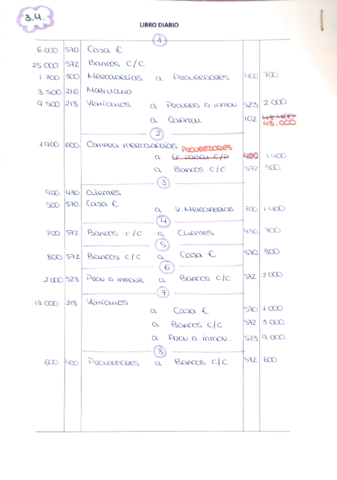 3.4.
LIBRO DIARIO
1
6 000 570 Caja €
25 000 572 Bancos c/c
1 700 300 Mercaderías a Proveedores 400 700
3 500 216 Mobiliario
9 500 218 Vehículos a Proveed. D inmov 523 2 000
a Capital 102 43.000
2
1900 600 Compra mercaderías PROVEEDORES
a 400 1 400
a Bancos c/c 572 500
3
900 430 Clientes
500 570 Caja €
a V Mercaderías 700 1 400
4
700 572 Bancos c/c a Clientes 430 700
5
800 572 Bancos c/c a Caja € 570 800
6
2 000 523 Prov. D inmovil. a Bancos c/c 572 2 000
7
13 000 218 Vehículos
a Caja € 570 1 000
a Bancos c/c 572 3 000
a Prov D inmov. 523 9 000
8
600 400 Proveedores a Bancos c/c 572 600